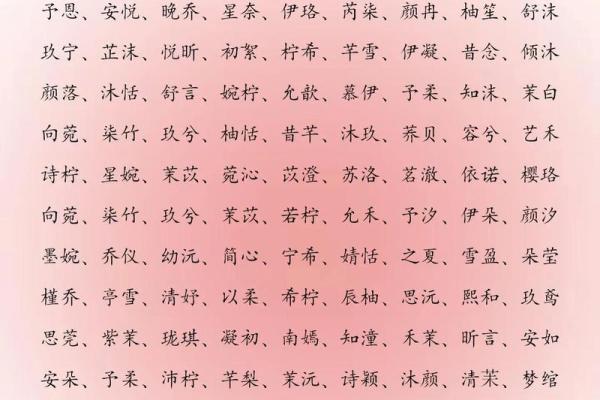 予恩、安悦、晚乔、星奈、伊珞、芮柒、颜冉、柚笙、舒沫
玖宁、芷沫、悦昕、初絮、柠希、芊雪、伊凝、昔念、倾沐
颜落、沐恬、舒言、婉柠、允歆、慕伊、予柔、知沫、茉白
向菀、柒竹、玖兮、柚恬、昔芊、沐玖、荞贝、容兮、艺禾
诗柠、星婉、茉苡、菀沁、苡澄、苏洛、茗澈、依诺、樱珞
向菀、柒竹、玖兮、茉苡、若柠、允禾、予汐、伊朵、颜汐
墨婉、乔仪、幼沅、简心、宁希、婧恬、之夏、雪盈、朵莹
槿乔、亭雪、清妤、以柔、希柠、辰柚、思沅、熙和、玖鸢
思莞、紫茉、珑琪、凝初、南嫣、知潼、禾茉、昕言、安如
安朵、予柔、沛柠、芊梨、茉沅、诗颖、沐颜、清茉、梦绾